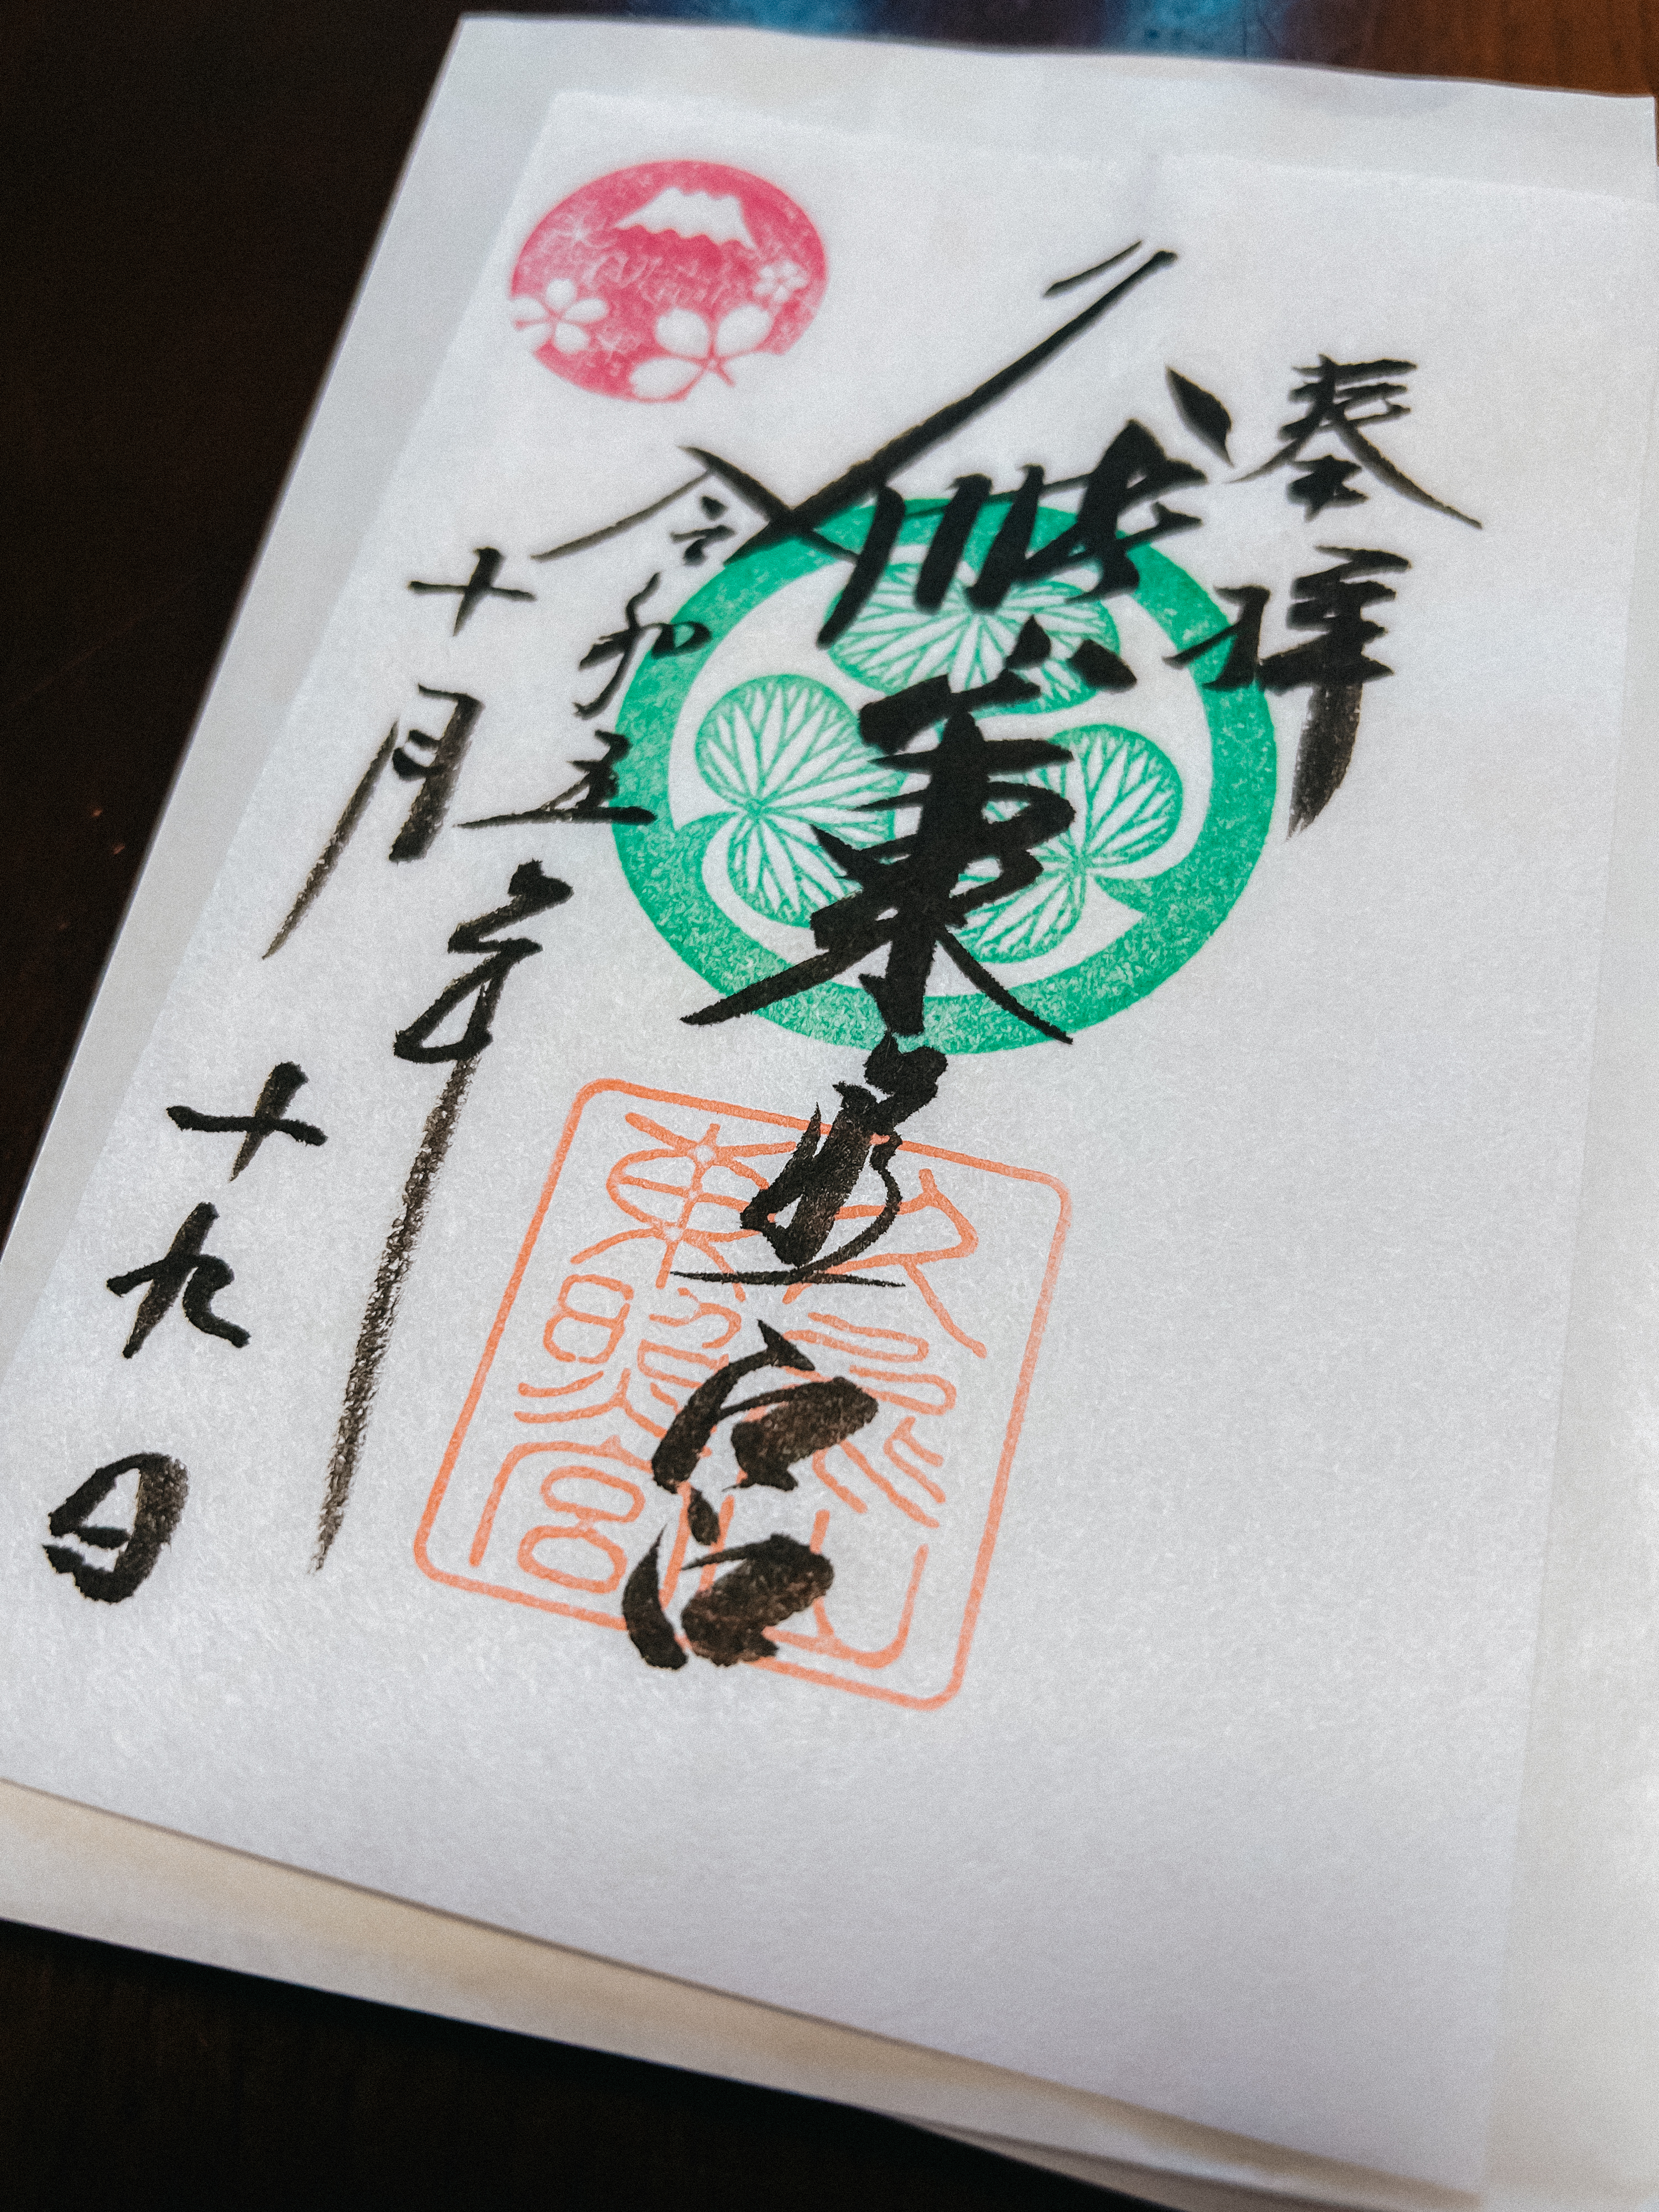 奉拝
久能山東照宮
令和五年
十月十九日
久能山
東照宮